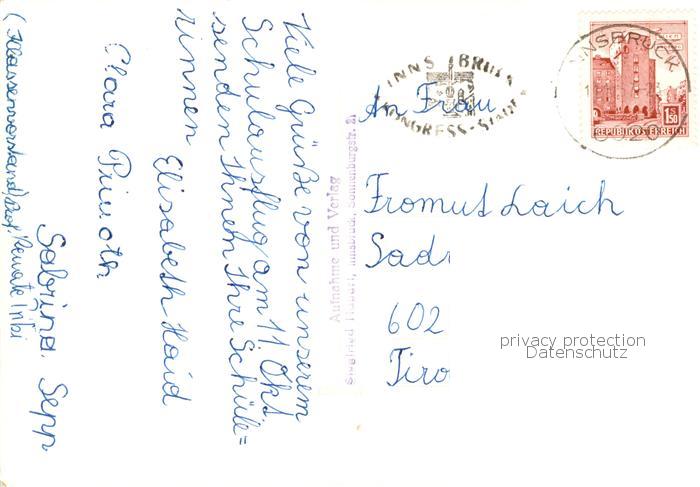 Viele Grüße von unserem
Schulausflug am 11. Okt.
senden Ihnen Ihre Schüle=
rinnen
Elisabeth Haid
Clara
Sabrina Sepp
(Klassenvorstand) Prof. Renate
Aufnahme und Verlag
Siegfried Innsbruck, Sonnenburgstr. 21
INNSBRUCK
KONGRESS-STADT
INNSBRUCK
1.50
REPUBLIK ÖSTERREICH
6020
An Frau
Fromut Laich
Sadr
602
Tiro
privacy protection
Datenschutz